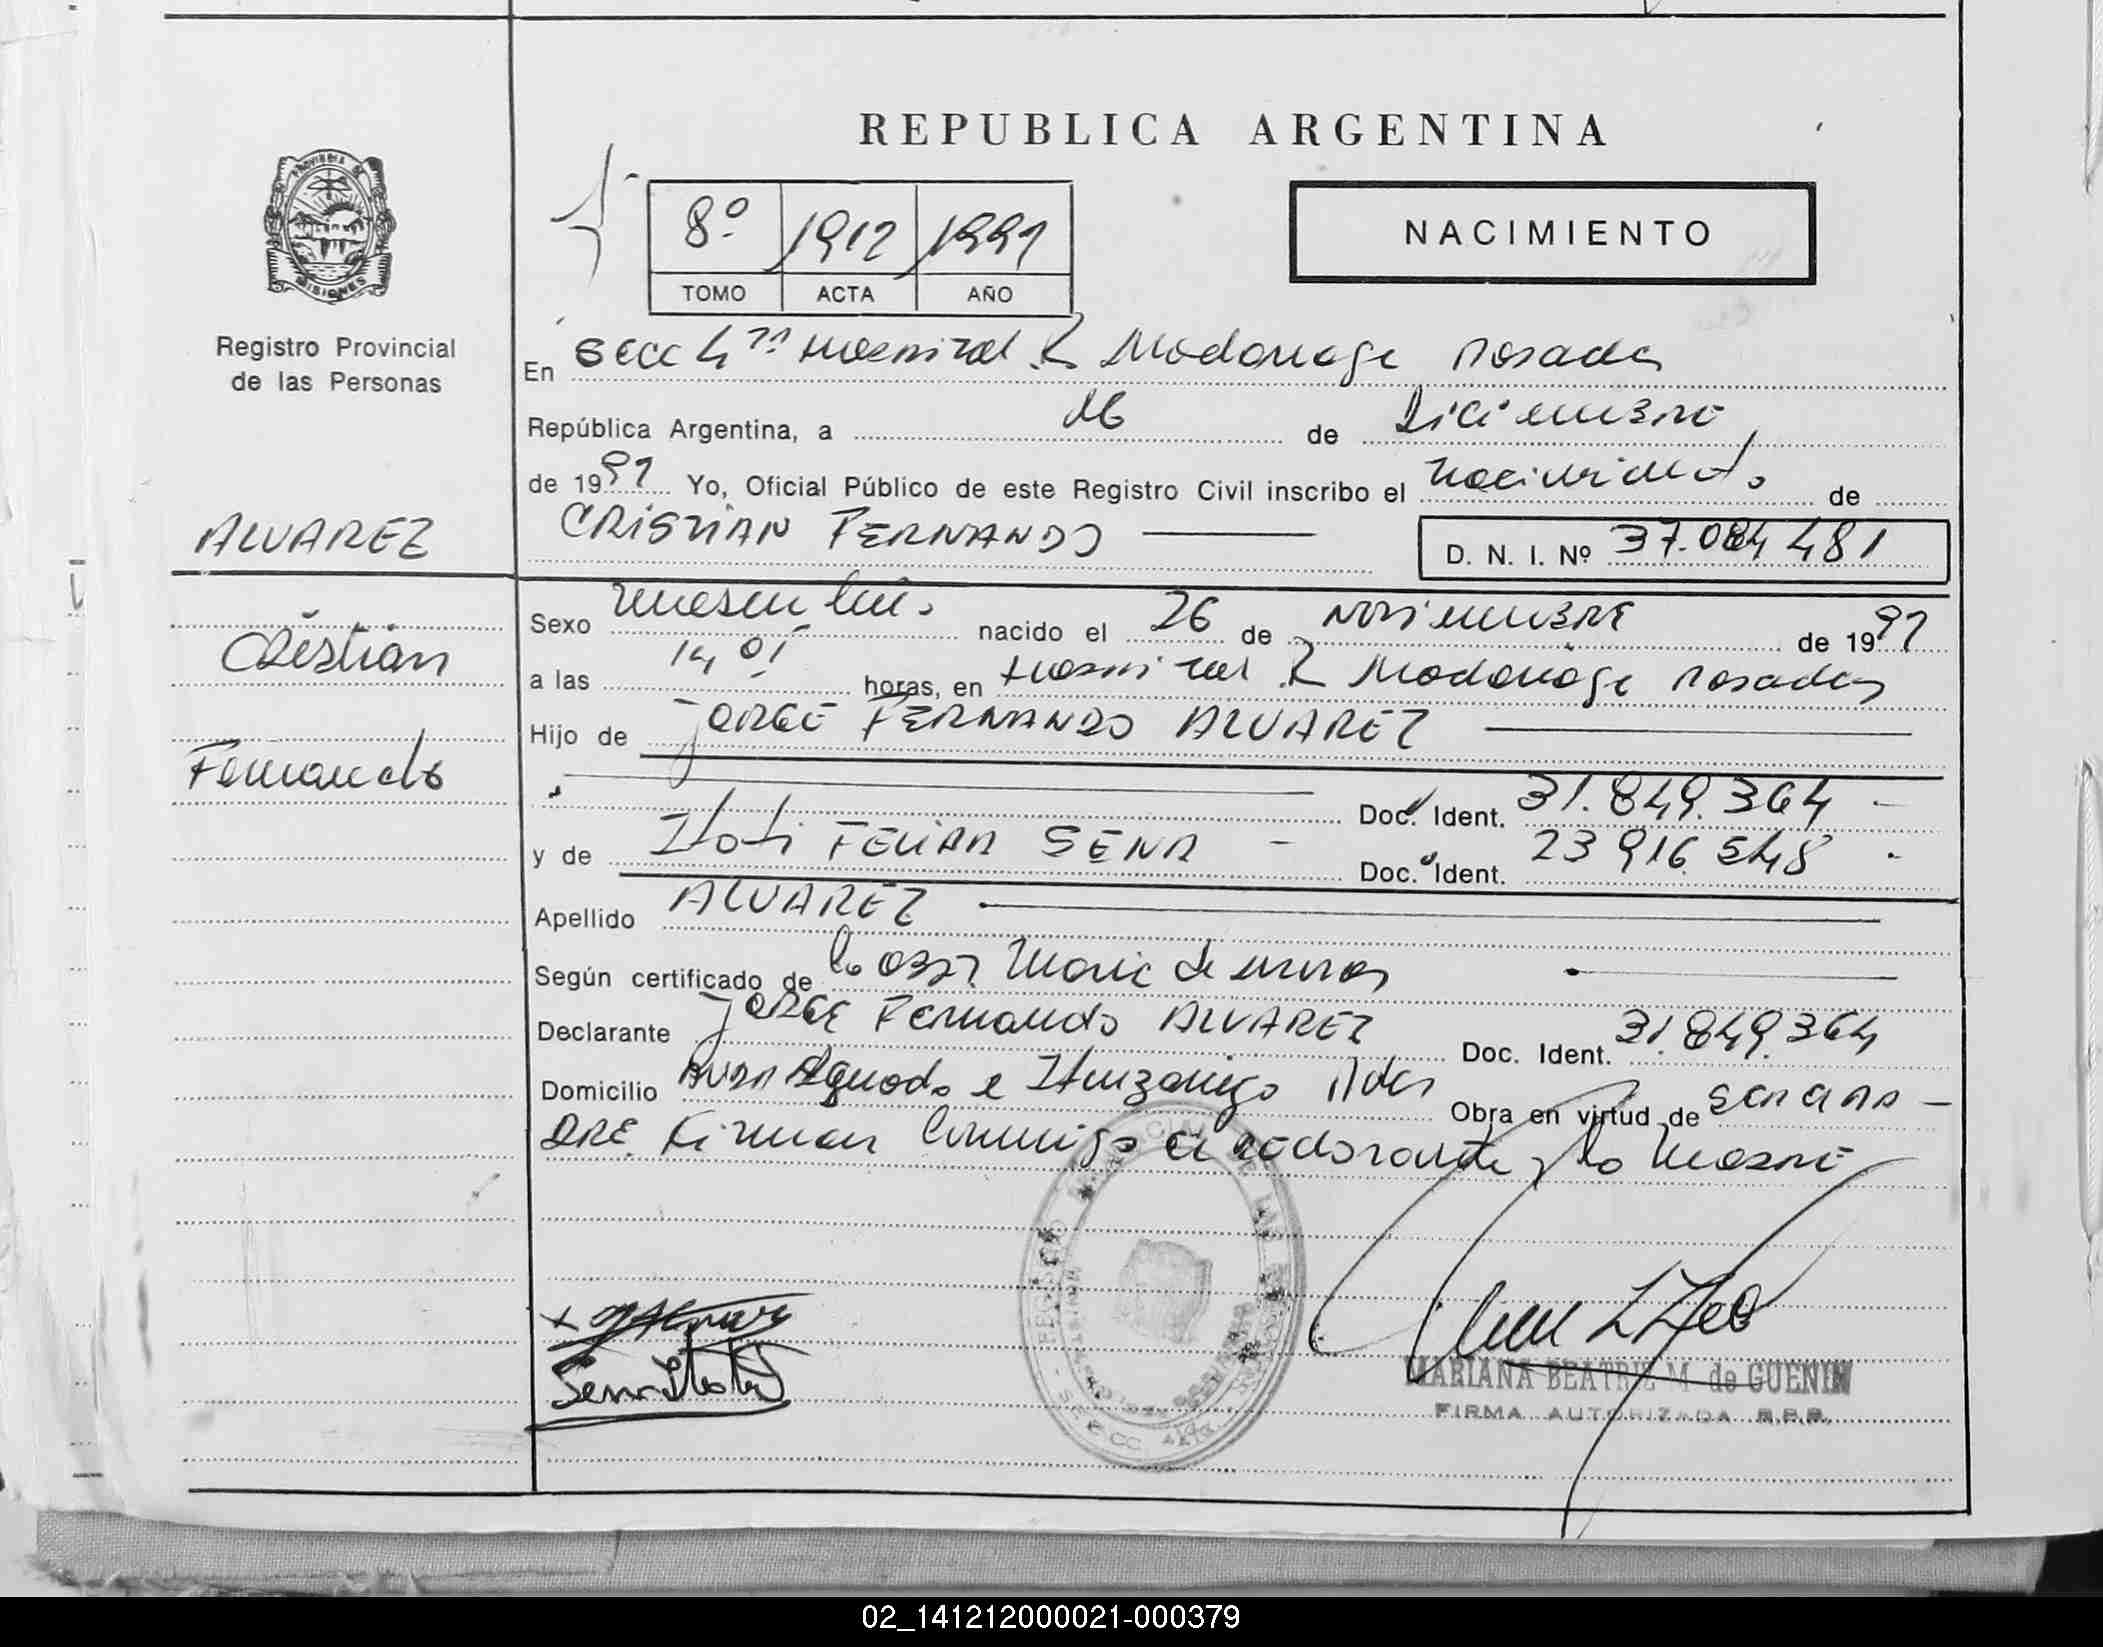 REPUBLICA ARGENTINA
PROVINCIA DE
MISIONES
Registro Provincial
de las Personas
8º 1912 1991
TOMO ACTA AÑO
NACIMIENTO
En Secc 4ta Hospital R Madariaga Posadas
República Argentina, a 16 de Diciembre
de 1991 Yo, Oficial Público de este Registro Civil inscribo el Nacimiento de
ALVAREZ
CRISTIAN FERNANDO
D. N. I. Nº 37.084 481
Cristian
Fernando
Sexo masculino nacido el 26 de Noviembre de 1991
a las 14,01 horas, en Hospital R Madariaga Posadas
Hijo de JORGE FERNANDO ALVAREZ
Doc. Ident. 31.849.364
y de Itati FELISA SENA Doc. Ident. 23 916 548
Apellido ALVAREZ
Según certificado de la Obst Maria de
Declarante JORGE Fernando ALVAREZ Doc. Ident. 31.849.364
Domicilio Aguado e Ituzaingo Pdas Obra en virtud de ser la
DRE. Firman Conmigo el declarante y la Madre
Sena Itati
MARIANA BEATRIZ M. de GUENIN
FIRMA AUTORIZADA R.P.P.
02_141212000021-000379